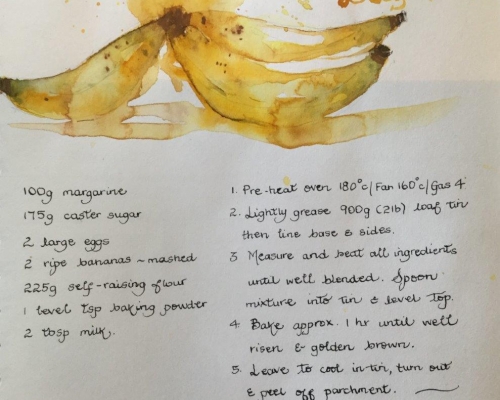 100g margarine
175g caster sugar
2 large eggs
2 ripe bananas ~ mashed
225g self-raising flour
1 level tsp baking powder
2 tbsp milk.
1. Pre-heat oven 180°c/Fan 160°c/Gas 4
2. Lightly grease 900g (2lb) loaf tin
then line base & sides.
3 Measure and beat all ingredients
until well blended. Spoon
mixture into tin & level top.
4 Bake approx. 1 hr until well
risen & golden brown.
5. Leave to cool in tin, turn out
& peel off parchment.